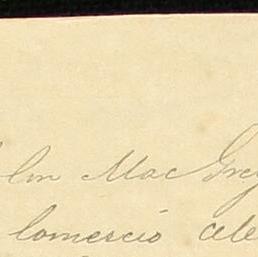 lon Mac Greg
comercio ale